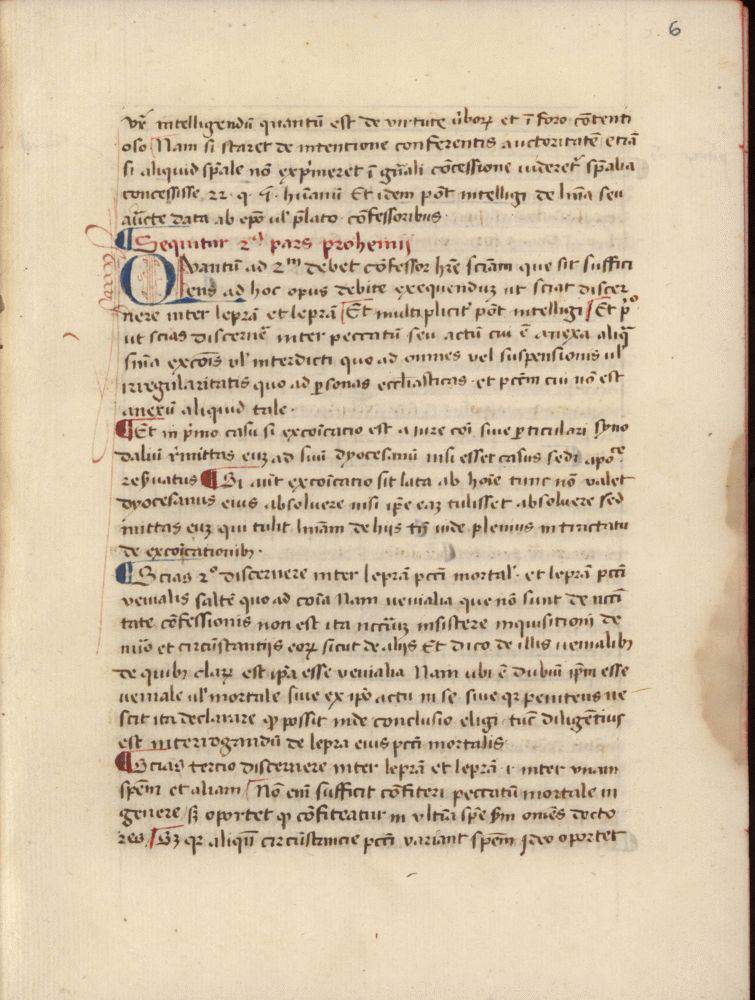 6
vr̄ intelligendū quantū est de virtute v̄boꝝ et ī foro cōtenti
oso Nam si staret de intentione conferentis auctoritatē etiā
si aliquid sp̄ale nō exp̄meret ī gn̄ali cōcessione videret᷑ sp̄alia
concessisse 22 · q · ī · hūanū Et idem pōt intelligi de lr̄ia seu
auc̄te data ab ep̄o vl̓ p̄lato cōfessoribus ·
Sequitur 2ᵃ pars prohemij
Qvantū ad 2ᵐ debet cōfessor hr̄e sciāꝫ que sit suffici
ens ad hoc opus debite exequenduꝫ ut sciat discer
nere inter leprā et leprā Et multiplicit̓ pōt intelligi Et p̊º
ut scias discernē inter peccatū seu actū cui ē anexa aliq̄
sn̄ia excōis vl̓ interdicti quo ad omnes vel suspensionis vl̓
irregularitatis quo ad ꝑsonas eccl̄iasticas · et pctm̄ cui nō est
anexū aliquid tale ·
Et in p̄mo casu si excōicatio est a iure cōi siue ꝑticulari syno
dalui r̄mittas euꝫ ad suū dyocesanū nisi esset casus sedi apoᶜᵉ
res̄uatus Si aut̄ excōicatio sit lata ab hoīe tunc nō valet
dyocesanus eius absoluere nisi ip̄e eaꝫ tulisset absoluere sed
mittas euꝫ qui tulit sn̄iam de hijs tn̄ vide plenius in tractatu
de excōicationibꝫ ·
Scias 2º discernere inter leprā pcc̄i mortal̓ · et leprā pcc̄i
venialis saltē quo ad cōia Nam uenialia que nō sunt de nc̄c̄i
tate cōfessionis non est ita nccāꝫ insistere inquisitioni de
nūo et circūstantijs eoꝝ sicut de alijs Et dico de illis uenialibꝫ
de quibꝫ claꝝ est ip̄a esse venialia Nam ubi ē dubiū ip̄m esse
ueniale vl̓ mortale siue ex ip̄o actu in se siue qꝛ penitens ne
scit ita declarare ꝙ possit inde conclusio eligi tūc diligētius
est interrogandū de lepra eius pcc̄i mortalis
Scias tercio discernere inter leprā et leprā · i · inter vnam
sp̄em et aliam Nō em̄ sufficit cōfiteri peccatū mortale in
genere sꝫ oportet ꝙ cōfiteatur in vltīa sp̄e sm̄ omēs docto
res Sꝫ qꝛ aliqn̄ circūstancie pcc̄i variant sp̄em ideo oportet